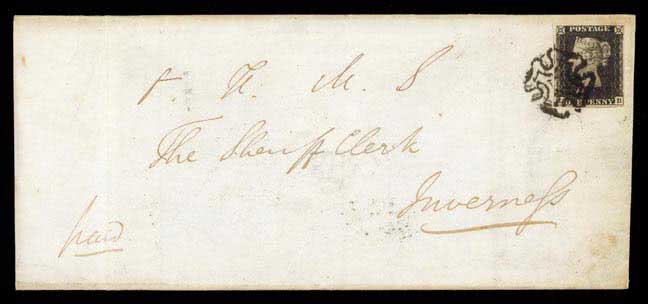 POSTAGE
ONE PENNY
H. M. S.
The Sheriff Clerk
Inverness
paid